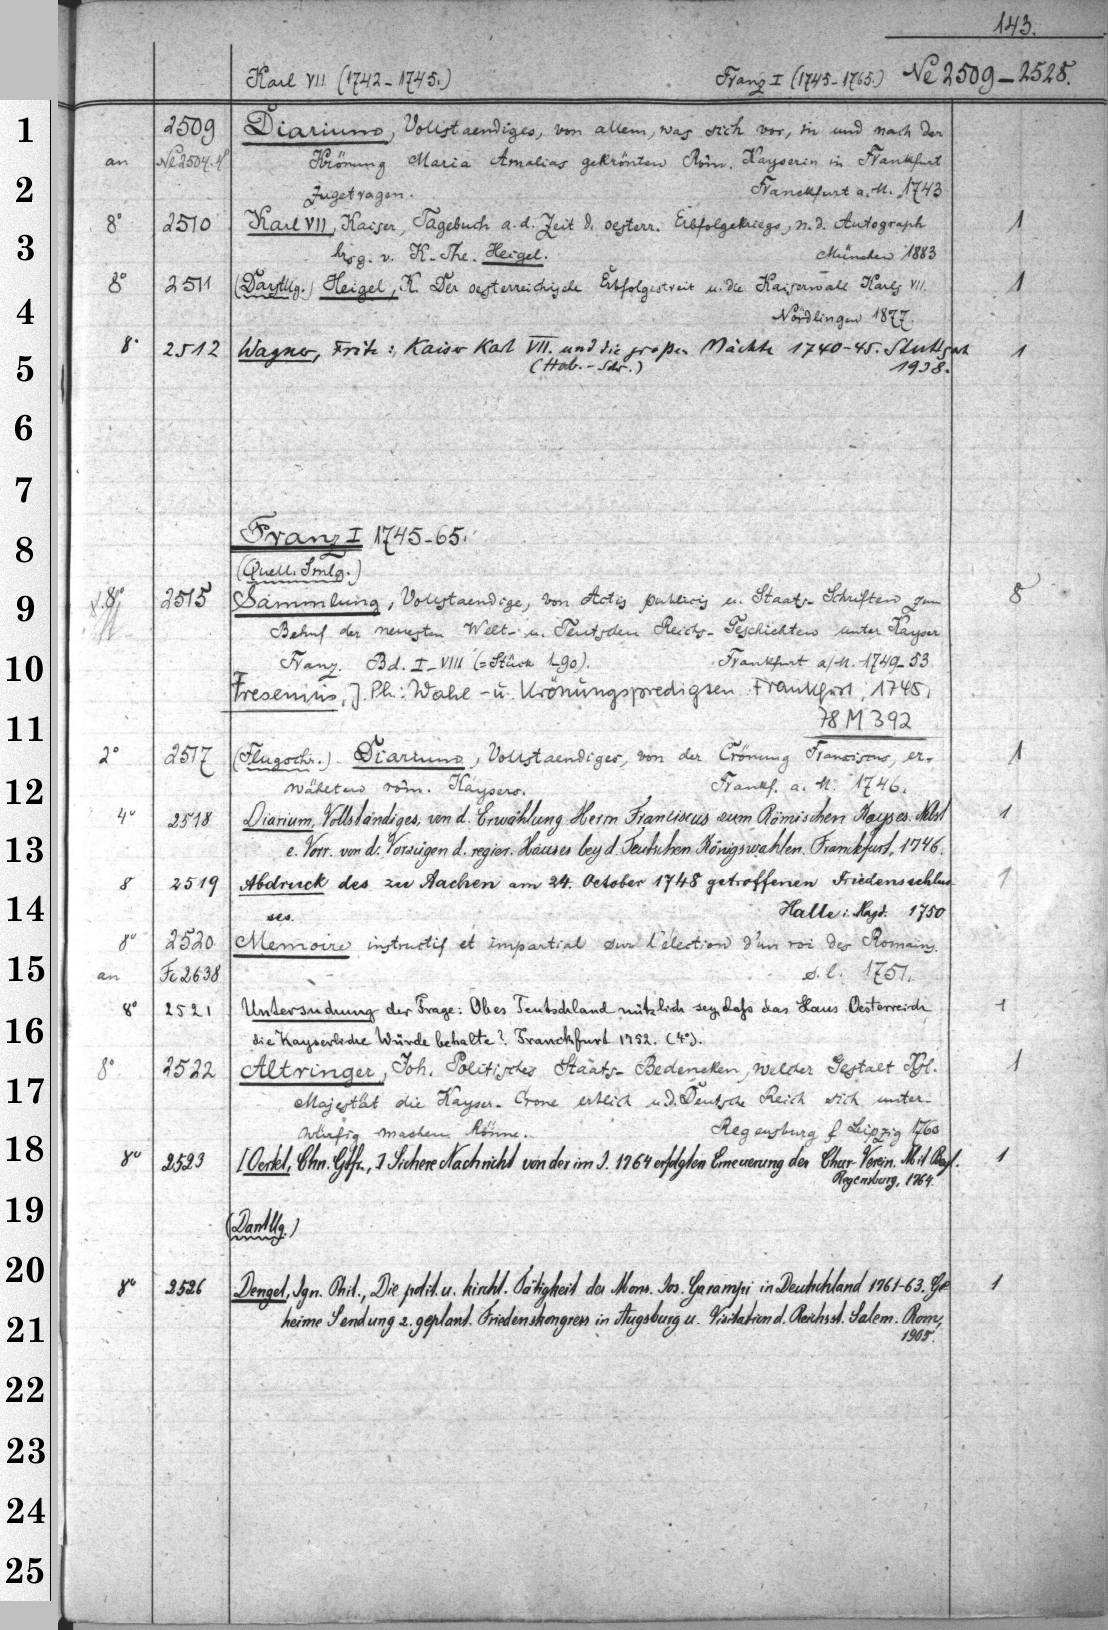 143.
Karl VII (1742-1745.) Franz I (1745-1765.) Ne 2509-2528.
1 2509 Diarium, Vollstaendiges, von allem, was sich vor, in und nach der
an Ne 2504 4° Krönung Maria Amalias gekrönten Röm. Kayserin in Frankfurt
2 zugetragen. Franckfurt a. M. 1743
8° 2510 Karl VII, Kaiser, Tagebuch a. d. Zeit d. oesterr. Erbfolgekriegs, n. d. Autograph 1
3 hrsg. v. K. Th. Heigel. München 1883
8° 2511 (Darstllg.) Heigel, K. Der oesterreichische Erbfolgestreit u. die Kaiserwahl Karls VII. 1
4 Nördlingen 1877.
8° 2512 Wagner, Fritz: Kaiser Karl VII. und die großen Mächte 1740-45. Stuttgart 1
5 (Hab.-Schr.) 1938.
6
7
8 Franz I 1745-65.
(Quell. Smlg.)
9 8° 2515 Sammlung, Vollstaendige, von Actis publicis u. Staats-Schriften zum 8
Behuf der neuesten Welt- u. Teutschen Reichs-Geschichten unter Kayser
10 Franz. Bd. I-VIII (=Stück 1-90). Frankfurt a/M. 1749-53
Fresenius, J. Ph.: Wahl- u. Krönungspredigten. Frankfurt, 1745.
11 78 M 392
2° 2517 (Flugschr.) Diarium, Vollstaendiges, von der Crönung Franciscus, er- 1
12 wählten röm. Kaysers. Frankf. a. M. 1746.
4° 2518 Diarium, Vollständiges, von d. Erwählung Herrn Franciscus zum Römischen Kayser. Nebst 1
13 e. Vorr. von d. Vorzügen d. regier. Hauses bey d. Teutschen Königswahlen. Franckfurt, 1746.
8 2519 Abdruck des zu Aachen am 24. October 1748 getroffenen Friedensschlus- 1
14 ses. Halle i. Magd. 1750
8° 2520 Memoire instructif et impartial sur l'élection d'un roi des Romains.
15 an Fc 2638 s. l. 1751.
8° 2521 Untersuchung der Frage: Ob es Teutschland nützlich sey, daß das Haus Oesterreich 1
16 die Kayserliche Würde behalte? Franckfurt 1752. (4°).
8° 2522 Altringer, Joh. Politisches Staats-Bedencken, welcher Gestalt Ksl. 1
17 Majestät die Kayser-Crone erblich u. d. Deutsche Reich sich unter-
würfig machen könne. Regensburg & Leipzig 1760
18 8° 2523 [Oertel, Chn. Gfr.,] Sichere Nachricht von der im J. 1764 erfolgten Erneuerung der Chur-Verein. Mit Beyl. 1
Regensburg, 1764.
19 (Darstllg.)
20 8° 2526 Dengel, Ign. Phil., Die polit. u. kirchl. Tätigkeit des Mons. Jos. Garampi in Deutschland 1761-63. Ge- 1
21 heime Sendung z. geplant. Friedenskongress in Augsburg u. Visitation d. Reichsst. Salem. Rom,
1905.
22
23
24
25